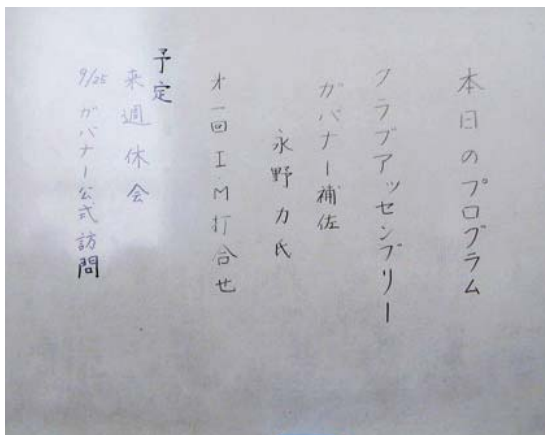 本日のプログラム
クラブアッセンブリー
ガバナー補佐
永野力氏
才一回I.M打合せ
予定
来週休会
9/25 ガバナー公式訪問